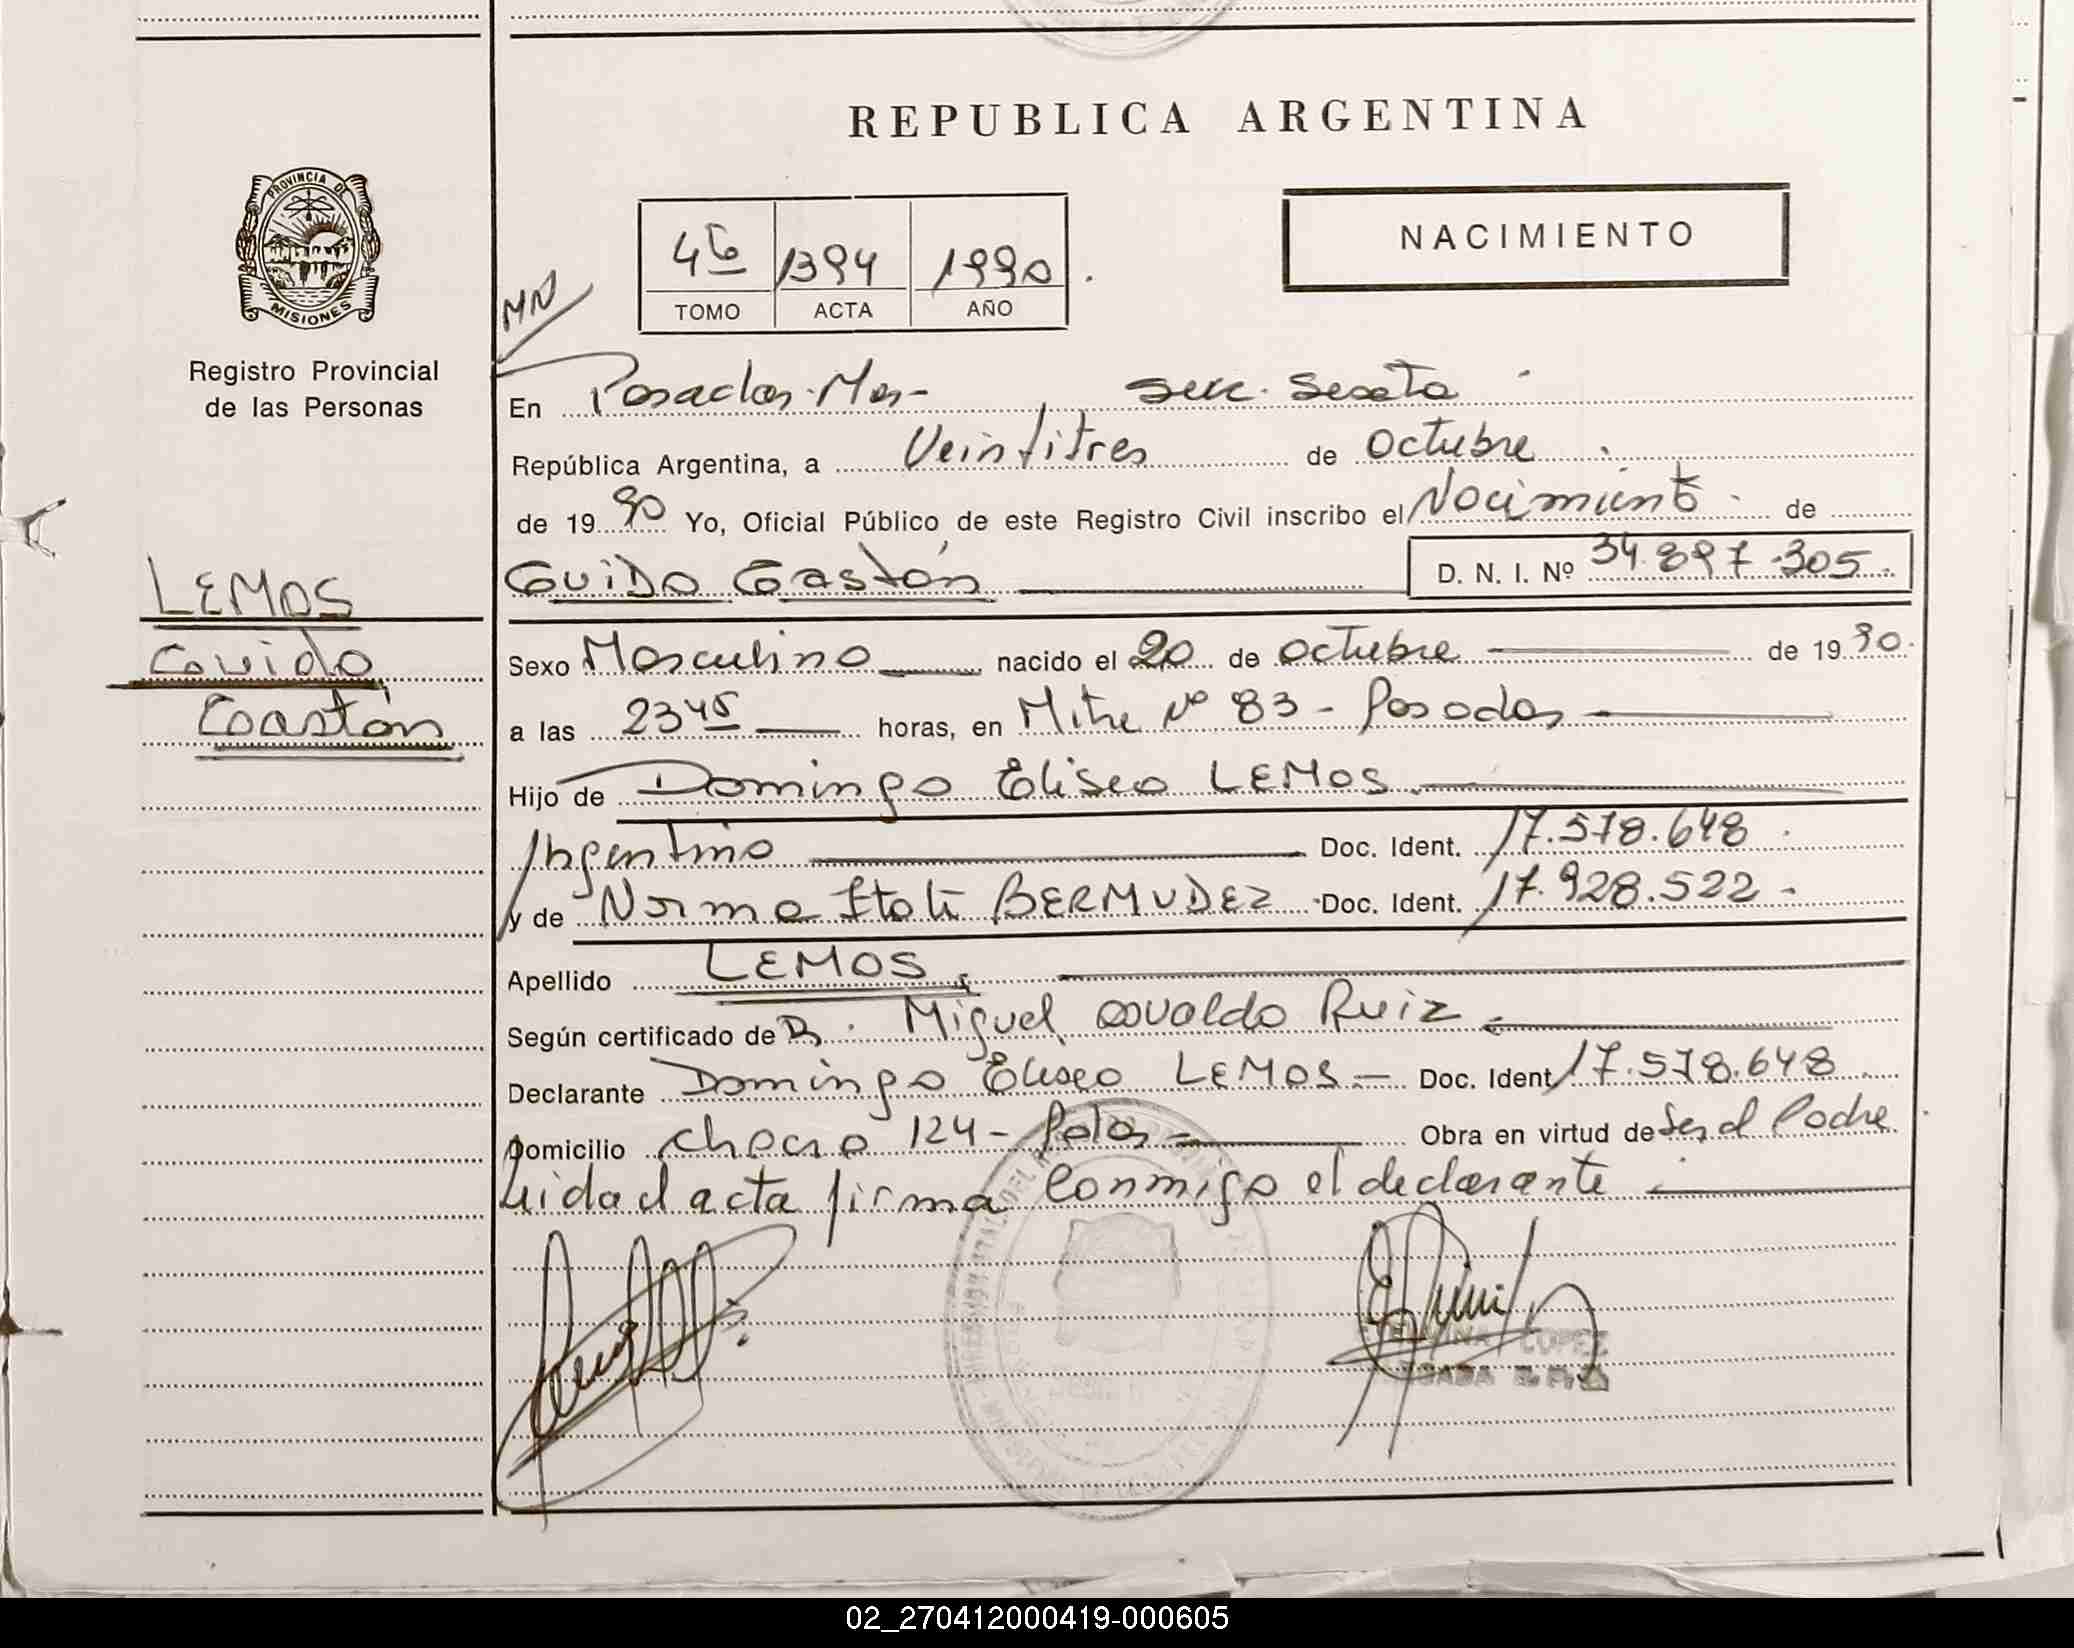 REPUBLICA ARGENTINA
PROVINCIA DE
MISIONES
Registro Provincial
de las Personas
4to 1394 1990
TOMO ACTA AÑO
NACIMIENTO
En Posadas-Mes- secc. Sexta
República Argentina, a Veintitres de Octubre
de 1990 Yo, Oficial Público de este Registro Civil inscribo el Nacimiento de
Guido Gastón D. N. I. Nº 34.897.305
LEMOS
Guido
Gastón
Sexo Masculino nacido el 20 de Octubre de 1990
a las 23 45 horas, en Mitre Nº 83 - Posadas
Hijo de Domingo Eliseo LEMOS
Argentino Doc. Ident. 17.578.648
y de Norma Itati BERMUDEZ Doc. Ident. 17.928.522
Apellido LEMOS
Según certificado de Dr. Miguel Osvaldo Ruiz
Declarante Domingo Eliseo LEMOS Doc. Ident 17.578.648
Domicilio 124 - Obra en virtud de Ser el Padre
Leida el acta firma conmigo el declarante
LOPEZ
02_270412000419-000605